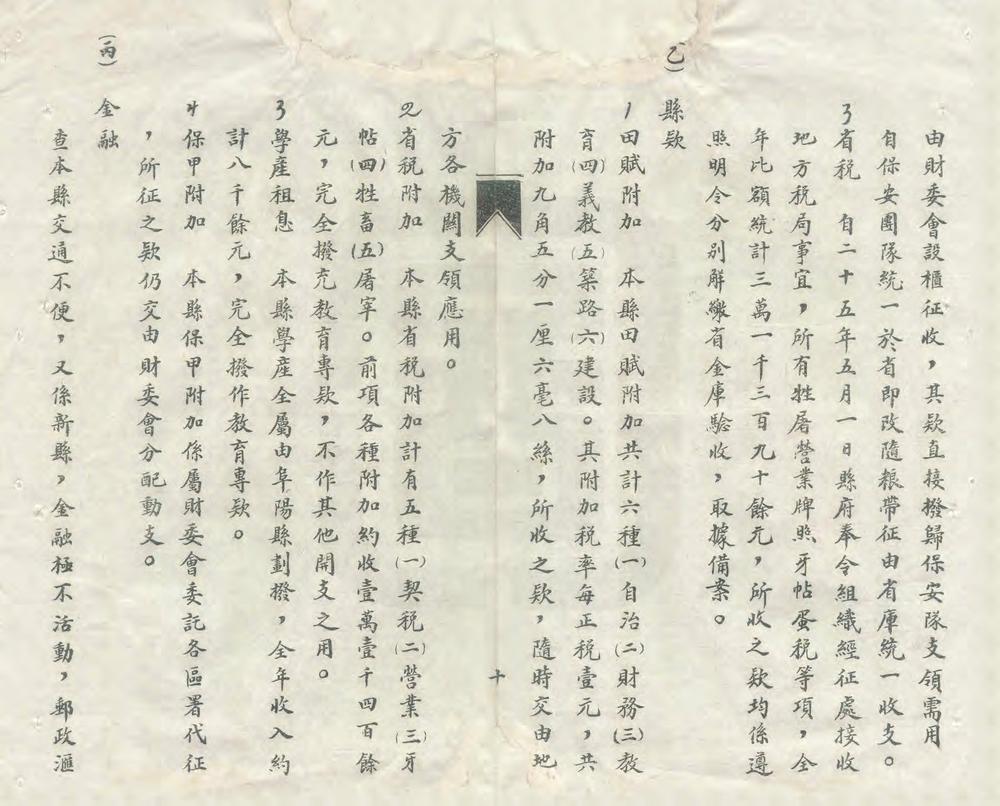 由財委會設櫃征收，其欵直接撥歸保安隊支領需用
自保安團隊統一於省即改隨粮帶征由省庫統一收支。
3省税　自二十五年五月一日縣府奉令組織經征處接收
地方税局事宜，所有牲屠營業牌照牙帖蛋税等項，全
年比額統計三萬一千三百九十餘元，所收之欵均係遵
照明令分別解繳省金庫驗收，取據備案。
(乙)縣欵
1田賦附加　本縣田賦附加共計六種(一)自治(二)財務(三)教
育(四)義教(五)築路(六)建設。其附加税率每正税壹元，共
附加九角五分一厘六毫八絲，所收之欵，隨時交由地
十
方各機關支領應用。
2省税附加　本縣省税附加計有五種(一)契税(二)營業(三)牙
帖(四)牲畜(五)屠宰。前項各種附加約收壹萬壹千四百餘
元，完全撥充教育專欵，不作其他開支之用。
3學產租息　本縣學產全屬由阜陽縣劃撥，全年收入約
計八千餘元，完全撥作教育專欵。
4保甲附加　本縣保甲附加係屬財委會委託各區署代征
，所征之欵仍交由財委會分配動支。
(丙)金融
查本縣交通不便，又係新縣，金融極不活動，郵政滙